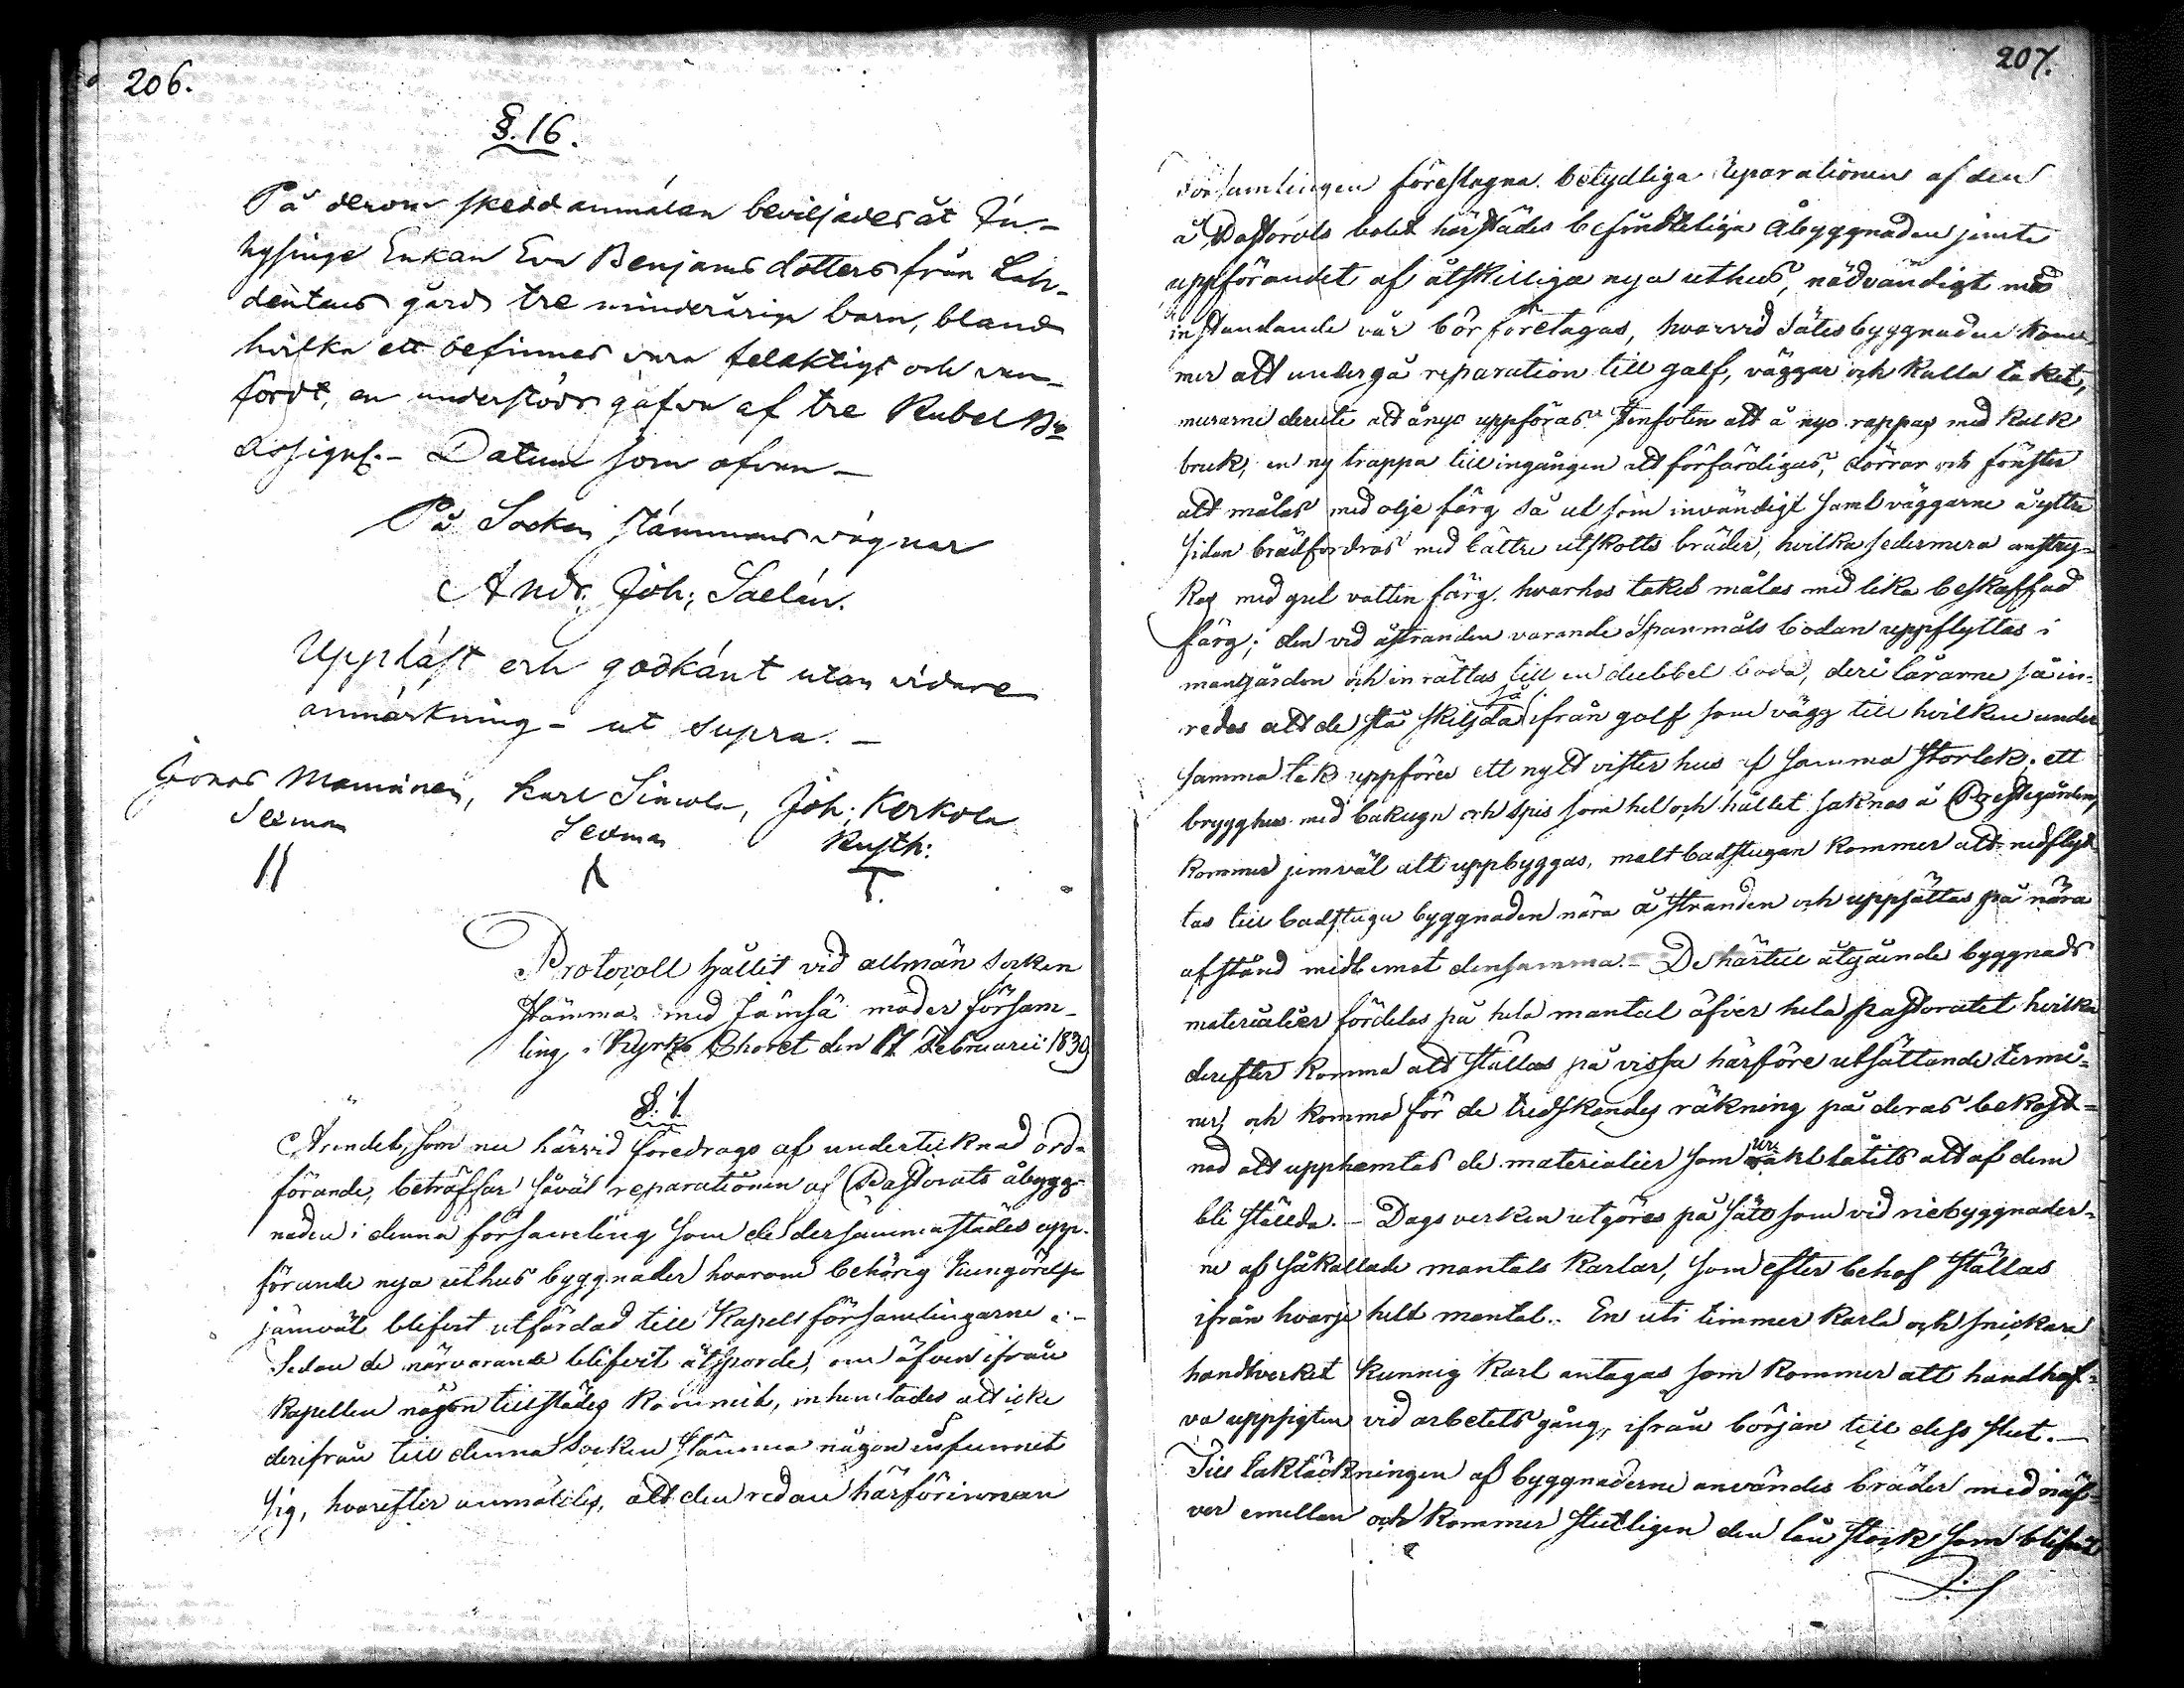 206.
§. 16.
På derom skedd anmälan beviljades åt In-
hysinge Enkan Eva Benjamsdotters från Lah-
dentaus gård tre minderåriga barn, bland
hvilka ett befinnes vara felaktigt och van-
fördt, en understöds gåfva af tre Rubel Bco
Assignr. - Datum som ofvan -
På Socken stämmans vägnar
Andr. Joh; Saelán.
Uppläst och godkänt utan vidare
anmärkning - ut supra. -
Jonas Maminen, Karl Simola, Joh; Kerkola
Sexman Sexman Rusth:
Protocoll hållit vid allmän socken
stämma med Jämsä moder försam-
ling i Kyrko Choret den 17 Februarii 1839
§. 1
Ärendet, som nu härvid föredrogs af undertecknad ord-
förande, beträffar såväl reparationen af Pastorats åbygg-
naden i denna församling som de dersammastädes upp-
förande nya uthus byggnader hvarom behörig kungörelse
jämväl blifvit utfärdad till Kapells församlingarne i-
Sedan de närvarande blifvit åtsporde, om äfven ifrån
Kapellen någon tillstädes kommit, inhemtades att icke
derifrån till denna Socken stämma någon infunnit
sig, hvarefter anmältes, att den redan härförinnan
207.
Församlingen föreslagna betydliga reparationen af den
å Pastorats bolet härstädes befindteliga Åbyggnaden jemte
uppförandet af åtskilliga nya uthus, nödvändigt med
instundande vår bör företagas, hvarvid Sätesbyggnaden kom-
mer att undergå reparation till golf, väggar och kalla taket,
murarne deruti att ånyo uppföras stenfoten att å nyo rappas med kalk
bruk, en ny trappa till ingången att förfärdigas, dörrar och fönster
att målas med olje färg så ut som invändigt samt väggarne å yttre
sidan brädfodras med bättre utskotts bräder, hvilka sedermera anstry-
kas med gul vatten färg. hvarhos taket målas med lika beskaffad
färg; den vid åstranden varande Spanmåls bodan uppflyttas i
mangården och inrättas till en dubbel boda, deri lårarne så in-
redes att de stå skiljda så ifrån golf som vägg till hvilken under
samma tak uppföres ett nytt visterhus af samma storlek; ett
brygghus med bakugn och spis som hel och hållet saknas å Prestegården,
kommer jemväl att uppbyggas, maltbadstugan kommer att nedflyt-
tas till badstugu byggnaden nära å stranden och uppsättas på nära
afstånd midt emot densamma. - De härtill åtgående byggnads
materialier fördelas på hela mantal öfver hela pastoratet hvilka
derefter komma att ställas på vissa härföre utsättande termi-
ner, och komma för de tredskandes räkning på deras bekost-
nad att upphämtas de materialier som uraktlåtits att af dem
bli ställda. - Dagsverken utgöres på sätt som vid riebyggnader-
ne af såkallade mantals Karlar, som efter behof ställas
ifrån hvarje helt mantal. - En uti timmer Karls och snickare
handtverket kunnig Karl antagas som kommer att handhaf-
va uppsigten vid arbetets gång, ifrån början till dess slut. -
Till taktäckningen af byggnaderne användes bräder med näf-
ver emellan och kommer slutligen den lån stock som blifvit